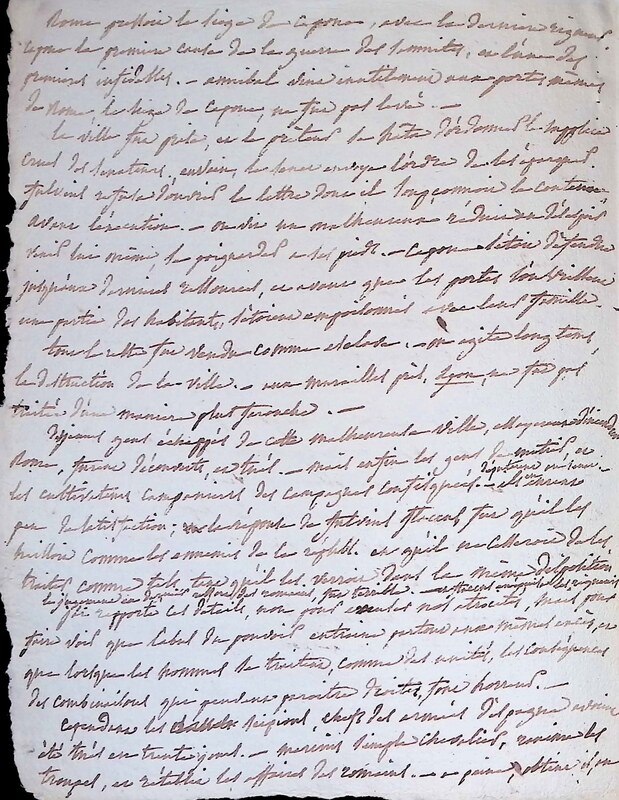 Rome pressoit le siège de Capoue, avec la dernière rigueur.
Capoue la première cause de la guerre des Samnites, et l'une des
premières infidelles. — annibal vint inutilement aux portes mêmes
de Rome, le siège de Capoue, ne fut pas levé. —
La ville fut prise, et le préteur se hata d'ordonner le supplice
cruel des senateurs. envain, le senat envoye l'ordre de les épargner
fulvius refusa d'ouvrir la lettre dont il soupçonnoit le contenu
avant l'exécution. — on vit un malheureux réduit au désespoir
venir lui même, se poignarder a ses pieds. — Capoue s'étoit défendue
jusqu'aux dernières ressources, et avant que les portes s'ouvrissent
une partie des habitants, s'étoient empoisonnés avec leur famille
tout le reste fut vendu comme esclave. — on agita longtems,
la destruction de la ville. — aux murailles près, Lyon, ne fut pas
traitée d'une manière plus farouche. —
quelques gens échappés de cette malheureuse ville, essayerent d'incendier
Rome, furent découverts, et tués. — mais enfin les gens de métier, et
les cultivateurs campaniens des campagnes confisquées
peu de satisfaction; la réponse de fulvius flaccus, fut qu'il les
comme les ennemis de la républ. et qu'il ne cesseroit de les
traiter comme tels, tant qu'il les verroit dans la même disposition
je rapporte ces détails, non pour nos atrocités, mais pour
faire voir que l'abus du pouvoir entraine partout aux mêmes excès, et
que lorsque les hommes se traitent, comme des unités, les conséquences
des combinaisons qui peuvent paroitre droites, font horreur. —
Cependant les Scipions, chefs des armées d'espagne avoient
été tués en trente jours. — marcius simple chevalier, ranime les
troupes, et rétablit les affaires des romains. — a peine, obtint il un